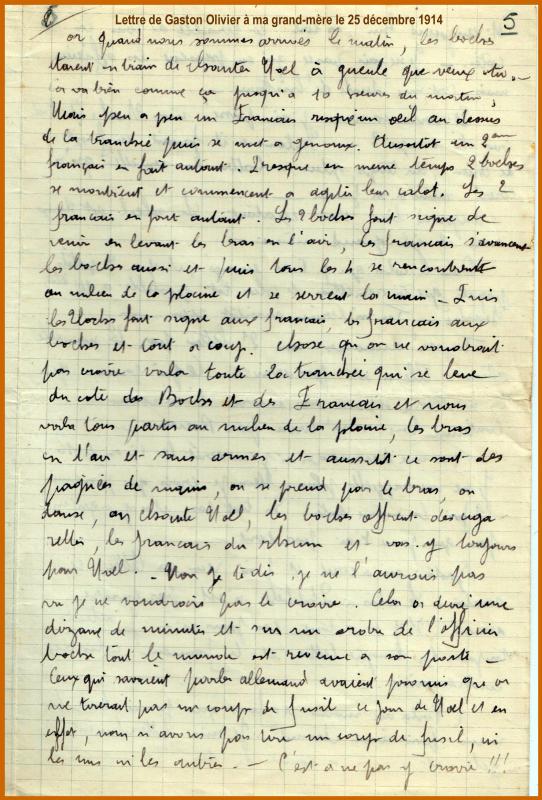 Lettre de Gaston Olivier à ma grand-mère le 25 décembre 1914
5
or quand nous sommes arrivés le matin, les boches
étaient en train de chanter Noel à gueule que veux-tu.
Ca va bien comme ça jusqu'à 10 heures du matin,
Mais peu a peu un Francais risque un oeil au dessus
de la tranchée puis se met a genoux. Aussitot un 2eme
français en fait autant. Presque en meme temps 2 boches
se montrent et commencent a agiter leur calot. Les 2
francais en font autant. Les 2 boches font signe de
venir en levant les bras en l'air, les francais s'avancent
les boches aussi et puis tous les 4 se rencontrent
au milieu de la plaine et se serrent la main - Puis
les 2 boches font signe aux francais, les francais aux
boches et tout a coup. chose qu'on ne voudrait
pas croire voila toute la tranchée qui se leve
du coté des Boches et des Francais et nous
voila tous partis au milieu de la plaine, les bras
en l'air et sans armes et aussitot ce sont des
poignées de mains, on se prend par le bras, on
danse, on chante Noel, les boches offrent des ciga
rettes, les francais du rhum et vas-y toujours
pour Noel. - Non je te dis, je ne l'aurais pas
vu je ne voudrais pas le croire. Cela a duré une
dizaine de minutes et sur un ordre de l'officier
boche tout le monde est revenu a son poste -
Ceux qui savaient parler allemand avaient promis que on
ne tirerait pas un coup de fusil ce jour de Noel et en
effet, nous n'avons pas tiré un coup de fusil, ni
les uns ni les autres. - C'est a ne pas y croire !!!